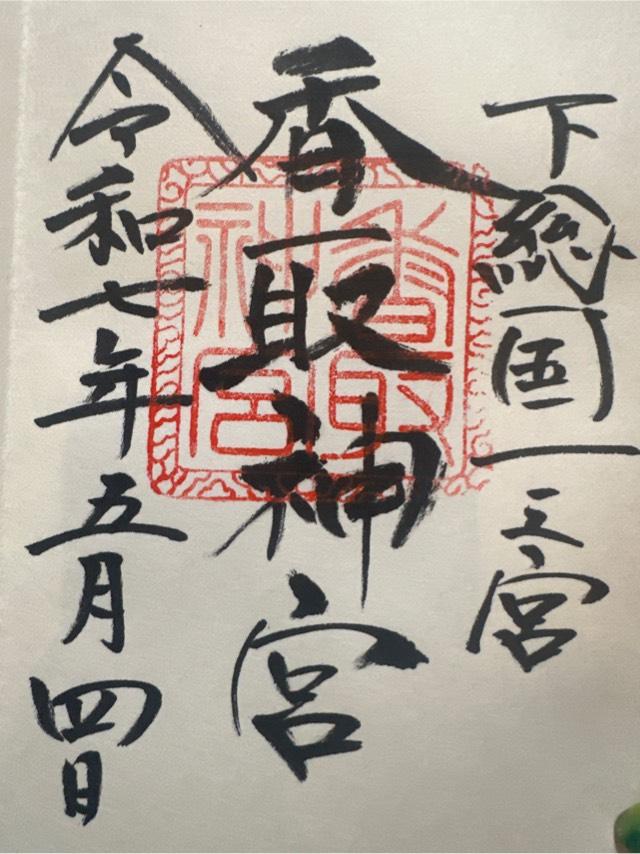 下総国一之宮
香取神宮
令和七年五月四日
香取
神宮